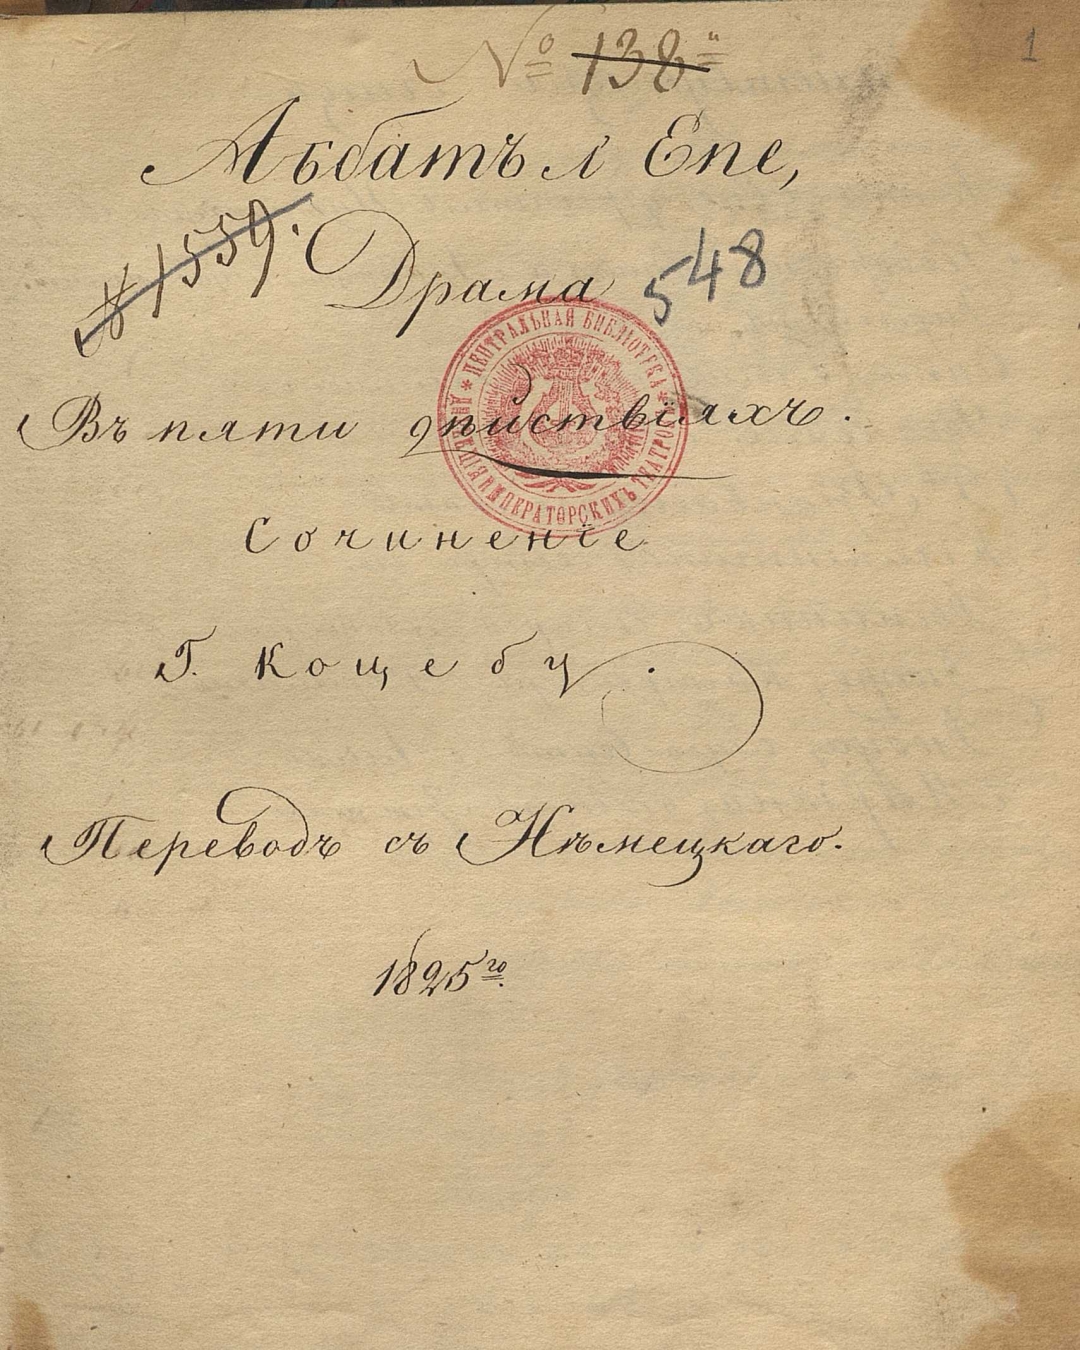 № 138
1
Аббатъ л' Епе,
№ 1559.
Драма
548
Въ пяти дѣйствіяхъ.
ЦЕНТРАЛЬНАЯ БИБЛІОТЕКА
ИМПЕРАТОРСКИХЪ ТЕАТРО
Сочиненіе
Г. Коцебу.
Переводъ съ Нѣмецкаго.
1825го.